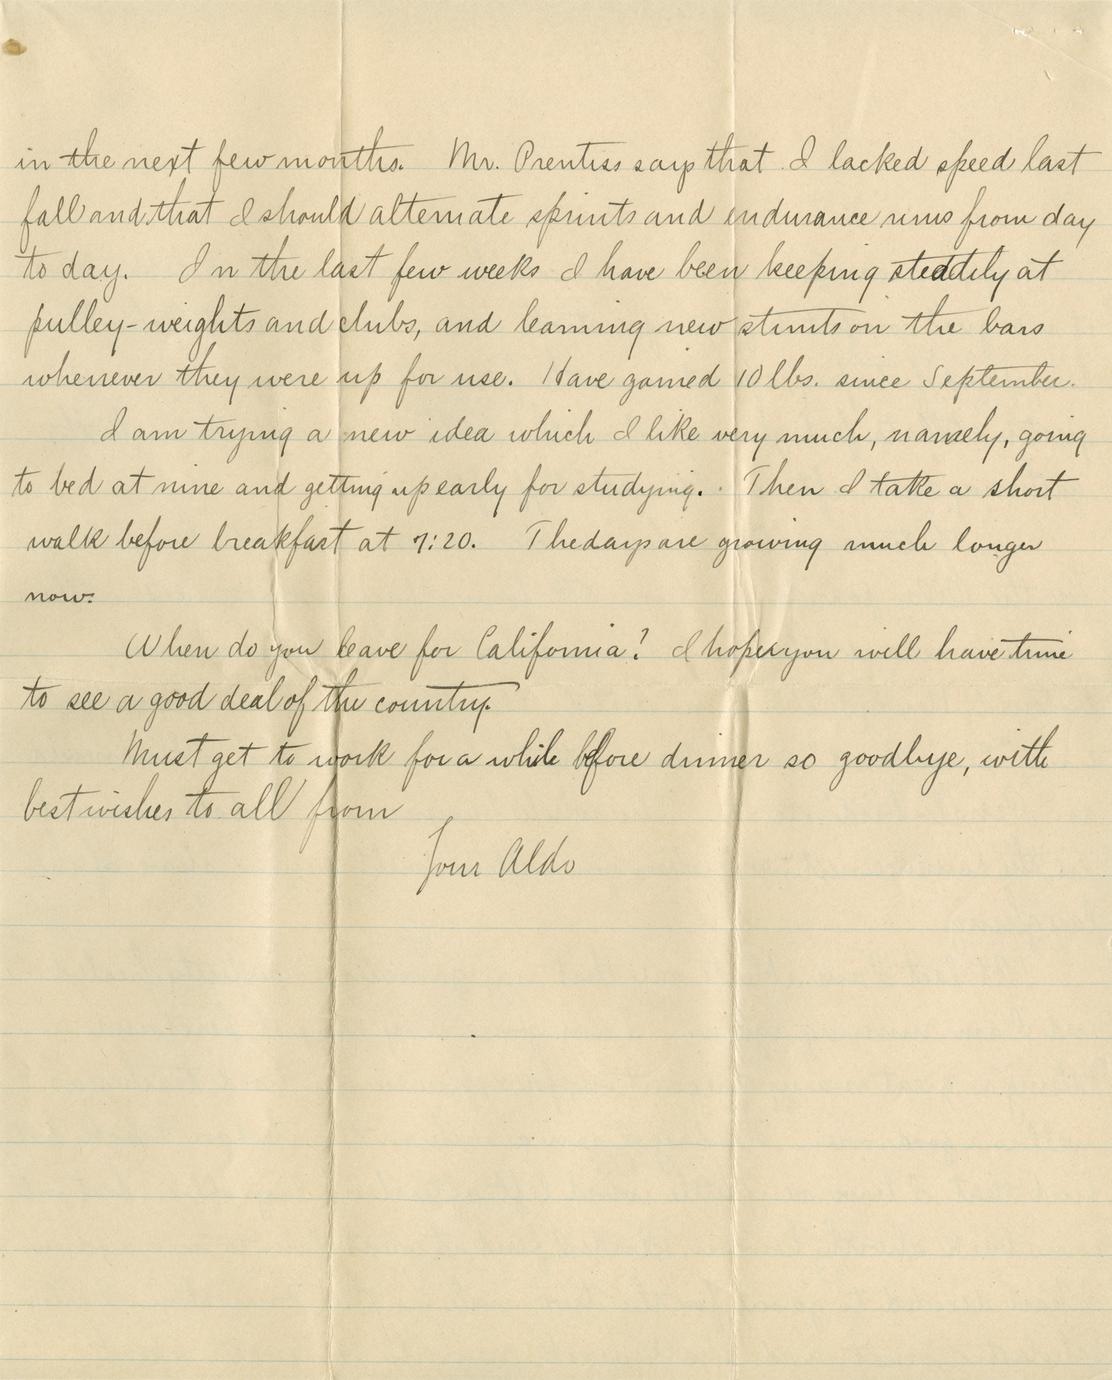 in the next few months. Mr. Prentiss says that I lacked speed last
fall and that I should alternate sprints and endurance runs from day
to day. In the last few weeks I have been keeping steadily at
pulley-weights and clubs, and learning new stunts on the bars
whenever they were up for use. Have gained 10 lbs. since September.
I am trying a new idea which I like very much, namely, going
to bed at nine and getting up early for studying. Then I take a short
walk before breakfast at 7:20. The days are growing much longer
now.
When do you leave for California? I hope you will have time
to see a good deal of the country.
Must get to work for a while before dinner so goodbye, with
best wishes to all from
Your Aldo